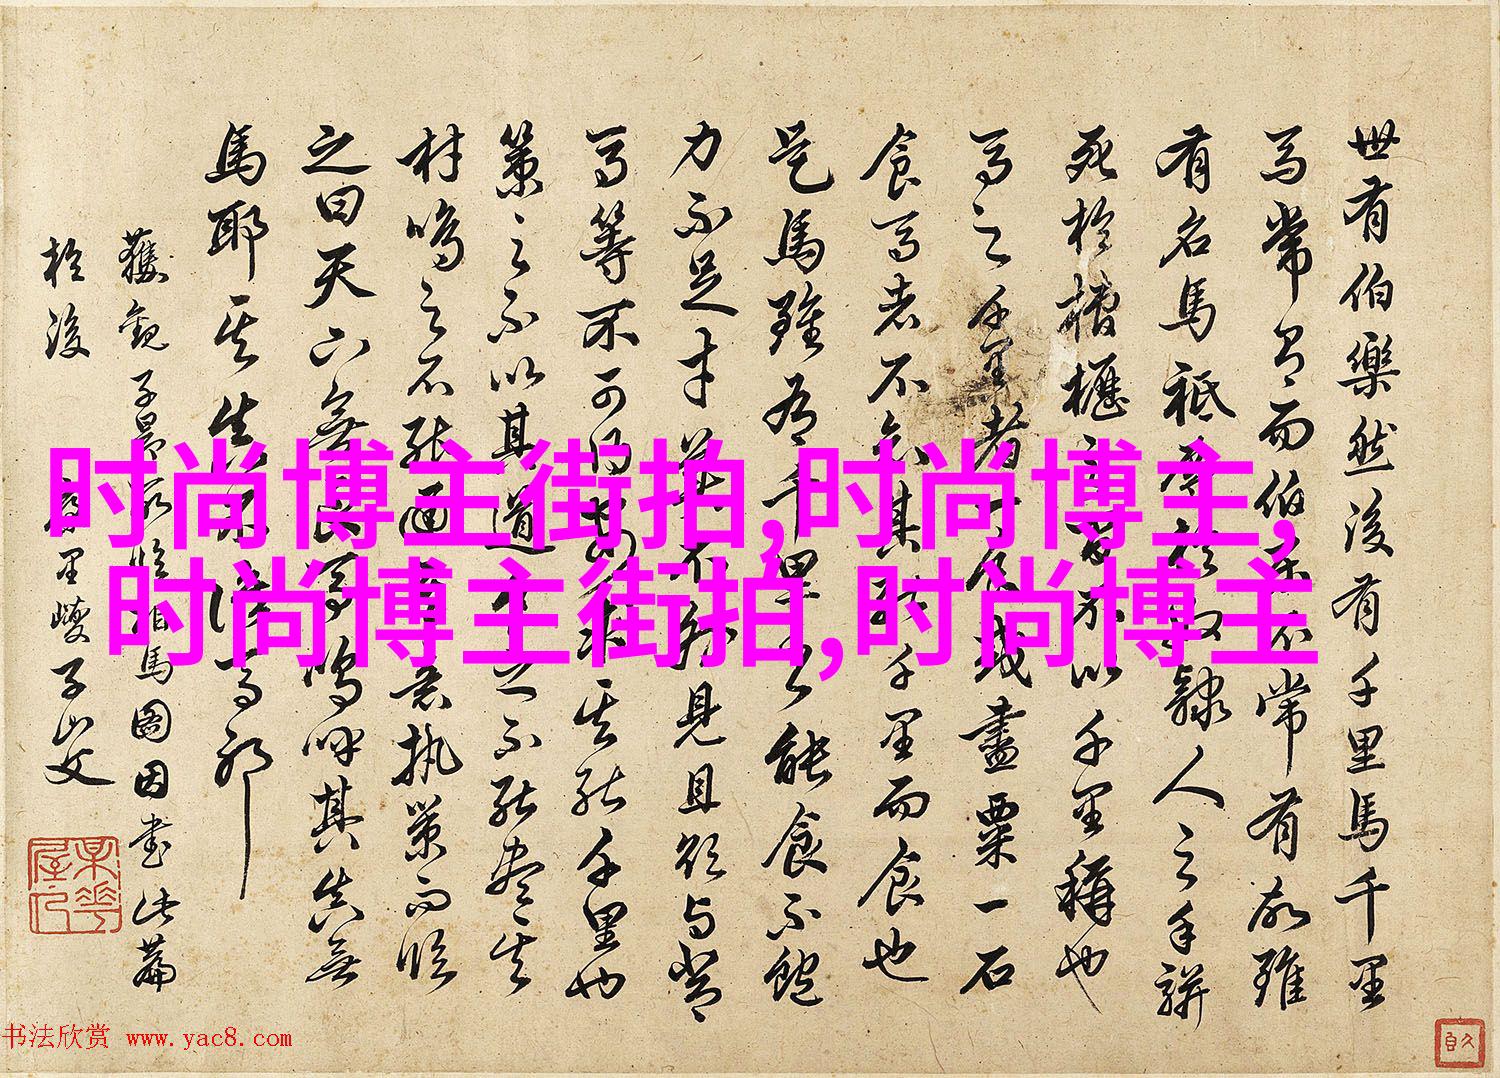 世有伯樂然後有千里馬千里
馬常有而伯樂不常有故雖
有名馬祗辱於奴隸人之手駢
死於槽櫪之間不以千里稱也
馬之千里者一食或盡粟一石
食馬者不知其能千里而食也
是馬雖有千里之能食不飽
力不足才美不外見且欲與常
馬等不可得安求其能千里也
策之不以其道食之不能盡其
材鳴之不能通其意執策而臨
之曰天下無良馬嗚呼其真無
馬耶其真不識馬耶
獲觀子相馬圖因書此篇
於後 子山父
时尚博主街拍,时尚博主,
时尚博主街拍,时尚博主
书法欣赏 www.yac8.com